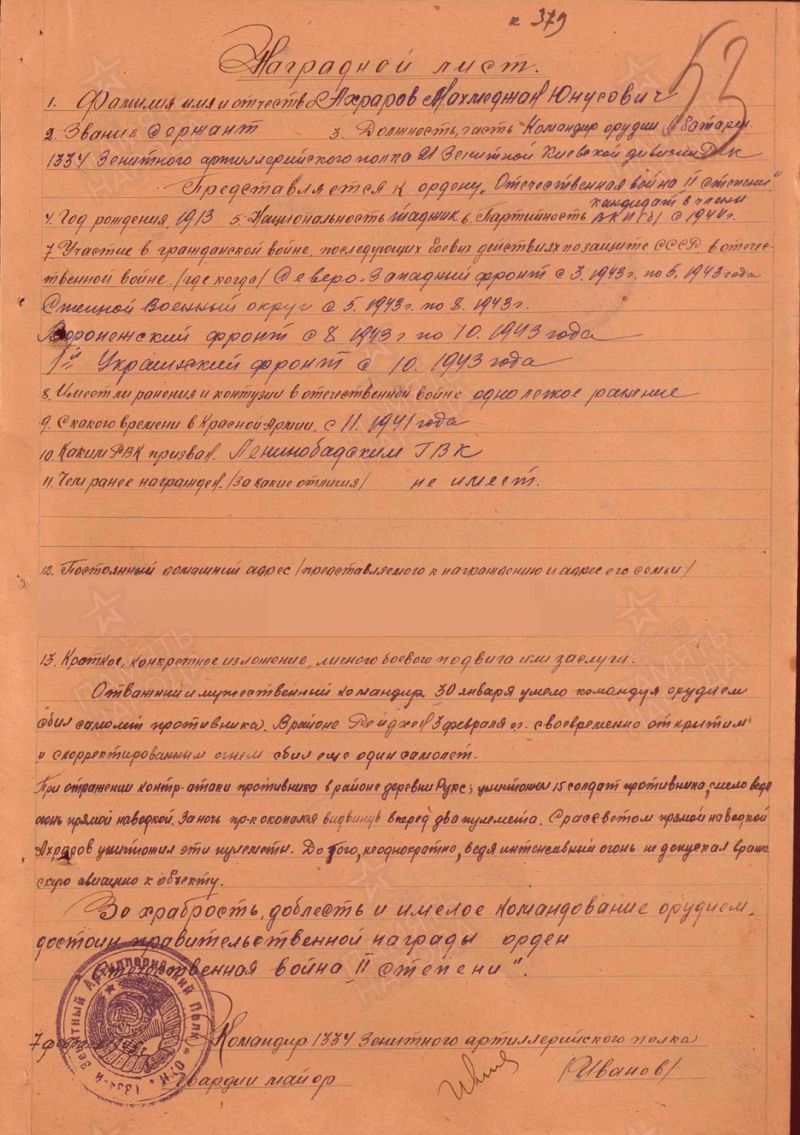 к 379
53
Наградной лист.
1. Фамилия имя и отчество Ахраров Махмеджан Юнусович
2. Звание сержант 3. Должность, часть Командир орудия батареи
1334 Зенитного артиллерийского полка 21 Зенитной Киевской дивизии РГК
Представляется к ордену „Отечественная война II степени"
кандидат в члены
4. Год рождения 1913 5. Национальность таджик 6. Партийность ВКП(б) с 1944г.
7. Участие в гражданской войне, последующих боевых действиях по защите СССР в отече-
ственной войне /где когда/ Северо-Западный фронт с 3.1943г. по 5.1943 года
Степной Военный округ с 5.1943г. по 8.1943г.
Воронежский фронт с 8.1943г по 10.1943 года
1й Украинский фронт с 10.1943 года
8. Имеет ли ранения и контузии в отечественной войне одно легкое ранение
9. С какого времени в Красной Армии с 11.1941 года
10. Каким РВК призван Ленинобадским ГВК
11. Чем ранее награжден /За какие отличия/ не имеет.
12. Постоянный домашний адрес /представляемого к награждению и адрес его семьи/
13. Краткое, конкретное изложение, личного боевого подвига или заслуги.
Отважный и мужественный командир 30 января умело командуя орудием
сбил самолет противника. В районе 3 февраля с.г. своевременно открытим
и скорректированым огнем сбил еще один самолет.
При отражении контр-атаки противника в районе деревни Рукс, уничтожил 15 солдат противника, смело ведя
огонь прямой наводкой. За ночь пр-к окопался выдвинув вперед два пулемета. С рассветом прямой наводкой
Ахраров уничтожил эти пулеметы. До того, неоднократно, ведя интенсивный огонь не допускал враже-
скую авиацию к объекту.
За храбрость, доблесть и умелое командование орудием,
достоин правительственной награды орден
„Отечественная война II степени".
1334-й Зенитный Артиллерийский Полк
7 февраля
Командир 1334 Зенитного артиллерийского полка
Гвардии майор /Иванов/
ПАМЯТЬ НАРОДА